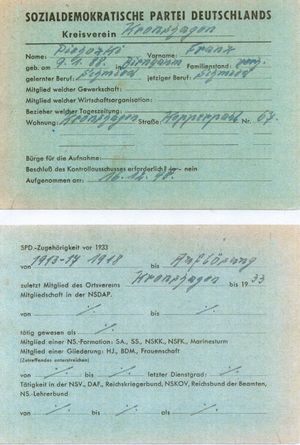 SOZIALDEMOKRATISCHE PARTEI DEUTSCHLANDS
Kreisverein Kronshagen
Name: Vorname: Franz
geb. am 9.4.88. in Birnbaum Familienstand:
gelernter Beruf: jetziger Beruf:
Mitglied welcher Gewerkschaft:
Mitglied welcher Wirtschaftsorganisation:
Bezieher welcher Tageszeitung:
Wohnung: Kronshagen Straße: Nr. 67.
Bürge für die Aufnahme:
Beschluß des Kontrollausschusses erforderlich? ja — nein
Aufgenommen am: 16.12.
SPD.-Zugehörigkeit vor 1933
von 1913-17 1918 bis Auflösung
zuletzt Mitglied des Ortsvereins Kronshagen bis 1933
Mitgliedschaft in der NSDAP.
von ./. bis ./.
tätig gewesen als ./.
Mitglied einer NS.-Formation: SA., SS., NSKK., NSFK., Marinesturm
Mitglied einer Gliederung: HJ., BDM., Frauenschaft
(Zutreffendes unterstreichen)
von ./. bis ./. letzter Dienstgrad: ./.
Tätigkeit in der NSV., DAF., Reichskriegerbund, NSKOV., Reichsbund der Beamten,
NS.-Lehrerbund
von ./. bis ./. als ./.